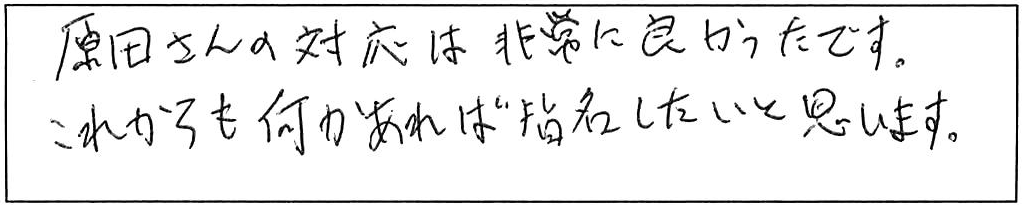 原田さんの対応は非常に良かったです。
これからも何かあれば指名したいと思います。